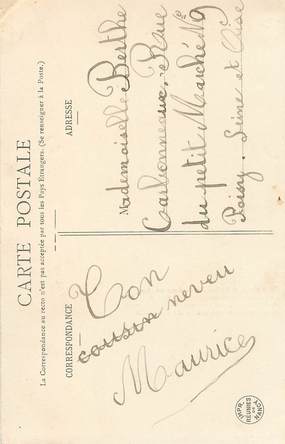 CARTE POSTALE
La Correspondance au recto n'est pas acceptée par tous les Pays Etrangers. (Se renseigner à la Poste.)
CORRESPONDANCE
Ton
cousin neveu
Maurice
ADRESSE
Mademoiselle Berthe
Carbonneaux, Rue
du petit Marché N° 9
Poissy. Seine et Oise
IMP.
RÉUNIES
DE
NANCY